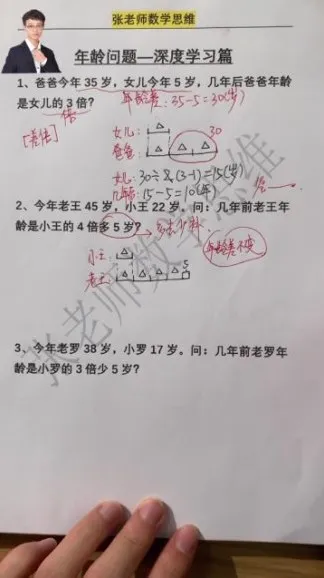 张老师数学思维
年龄问题—深度学习篇
1、爸爸今年 35 岁，女儿今年 5 岁，几年后爸爸年龄
是女儿的 3 倍？
年龄差：35-5=30(岁)
倍
[差倍]
女儿：
30
爸爸：
女儿：30÷(3-1)=15(岁)
几年后：15-5=10(年)
答
2、今年老王 45 岁，小王 22 岁。问：几年前老王年
龄是小王的 4 倍多 5 岁？
年龄差不变
小王：
5
老王：
3、今年老罗 38 岁，小罗 17 岁。问：几年前老罗年
龄是小罗的 3 倍少 5 岁？
张老师数学思维